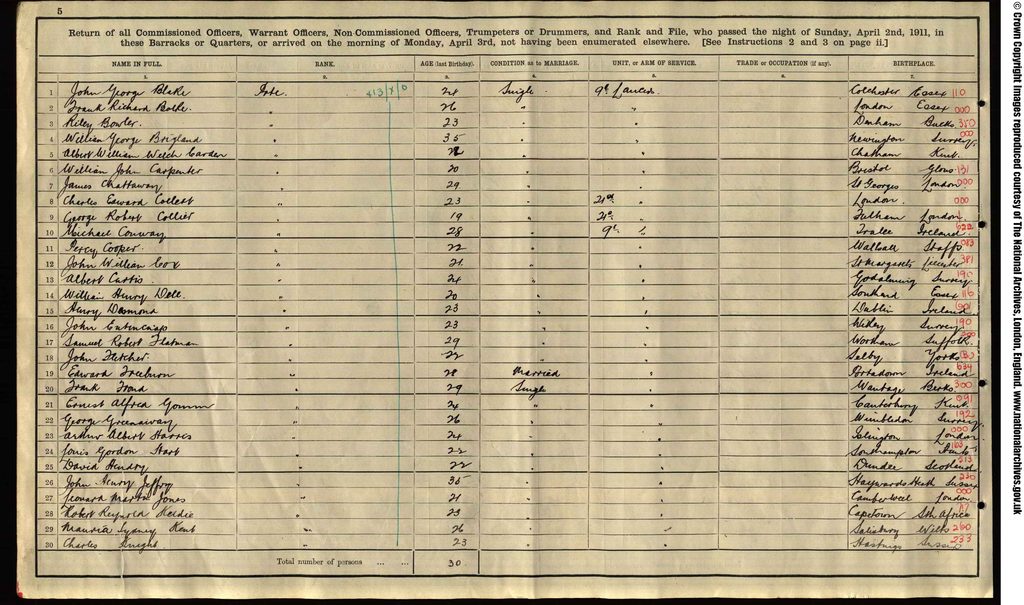 5
Return of all Commissioned Officers, Warrant Officers, Non-Commissioned Officers, Trumpeters or Drummers, and Rank and File, who passed the night of Sunday, April 2nd, 1911, in
these Barracks or Quarters, or arrived on the morning of Monday, April 3rd, not having been enumerated elsewhere. [See Instructions 2 and 3 on page ii.]
NAME IN FULL. RANK. AGE (last Birthday). CONDITION as to MARRIAGE. UNIT, or ARM OF SERVICE. TRADE or OCCUPATION (if any). BIRTHPLACE.
1. 2. 3. 4. 5. 6. 7.
1 John George Blake Pte. 413/X/0 24 Single 9th Lancers Colchester Essex 110
2 Frank Richard 26 " " London Essex 000
3 Riley Bowler. 23 " " Denham Bucks 350
4 William George Brigland 35 " " Newington Surrey 000
5 Albert William Welch Carden " " Chatham Kent.
6 William John Carpenter 20 " " Bristol Glous 131
7 James Chattaway 29 " " St Georges London 000
8 Charles Edward Collett 23 " 21st " London. 000
9 George Robert Collier 19 " " Fulham London.
10 Michael Conway 28 " 9th " Tralee Ireland 022
11 Percy Cooper. 22 " " Walsall Staffs 083
12 John William Cox 21 " " St Margarets Leicester 381
13 Albert Curtis. 24 " " Godalming Surrey 190
14 William Henry Dell 20 " " Southend Essex 116
15 Henry Desmond 23 " " Dublin Ireland
16 John Entincknap 23 " " Witley Surrey 190
17 Samuel Robert Flatman 29 " " Wortham Suffolk.
18 John Fletcher. 22 " " Selby Yorks
19 Edward Freeburn 28 Married " Portadown Ireland 024
20 Frank Frond 29 Single " Wantage Berks 300
21 Ernest Alfred Gomm 24 " " Canterbury Kent 091
22 George Greenaway 26 " " Wimbledon Surrey 192
23 Arthur Albert Harris 24 " " Islington London 000
24 Louis Gordon Hart 22 " " Southampton Hants
25 David Hendry 22 " " Dundee Scotland 013
26 John Henry Jeffroy 35 " " Haywards Heath Sussex 230
27 Leonard Martin Jones 21 " " Camberwell London 000
28 Robert Reynold Keddie 23 " " Capetown Sth Africa
29 Maurice Sydney Kent 26 " " Salisbury Wilts 260
30 Charles Knight 23 " " Hastings Sussex 233
Total number of persons ... ... 30
© Crown Copyright Images reproduced courtesy of The National Archives, London, England. www.nationalarchives.gov.uk